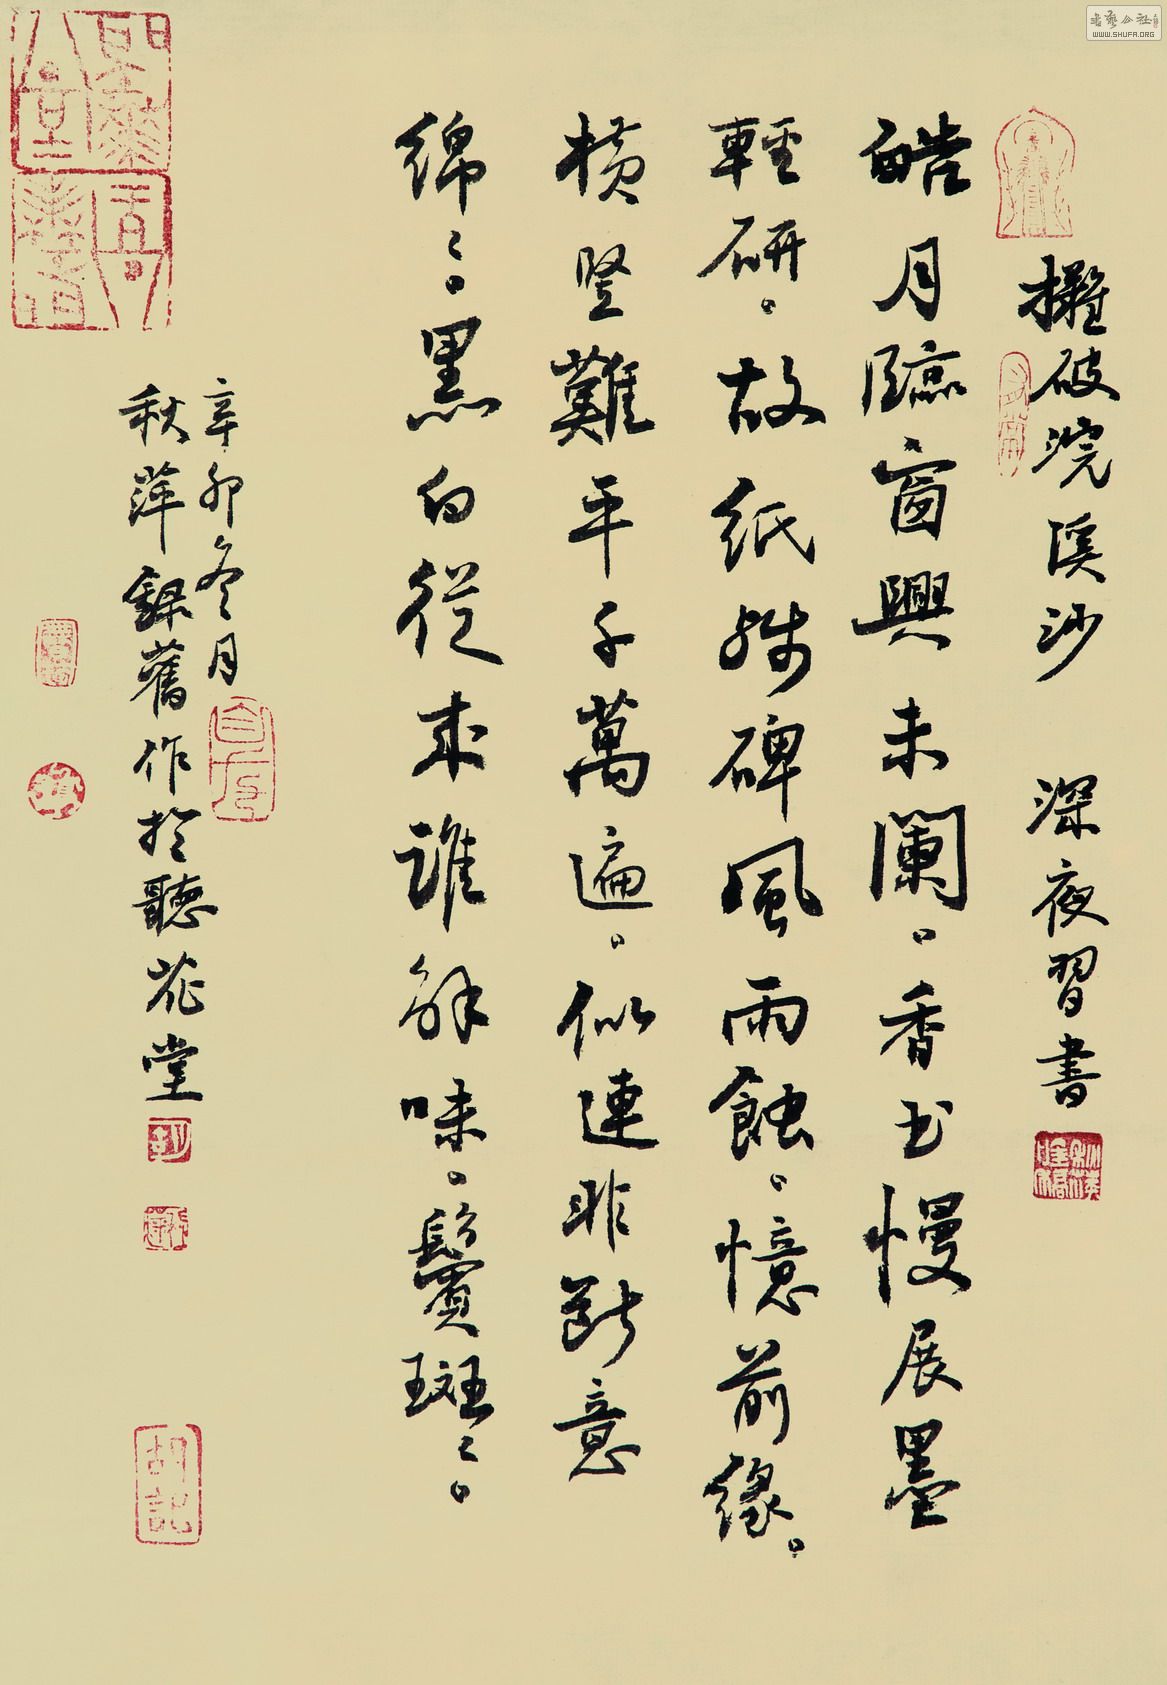 攤破浣溪沙 深夜習書
皓月臨窗興未闌。香書慢展墨
輕研。故紙殘碑風雨蝕。憶前緣。
橫豎難平千萬遍。似連非斷意
綿〻。黑白從來誰解味。鬢斑〻。
辛卯冬月
秋萍録舊作於聽花堂
胡記
書藝公社
WWW.SHUFA.ORG